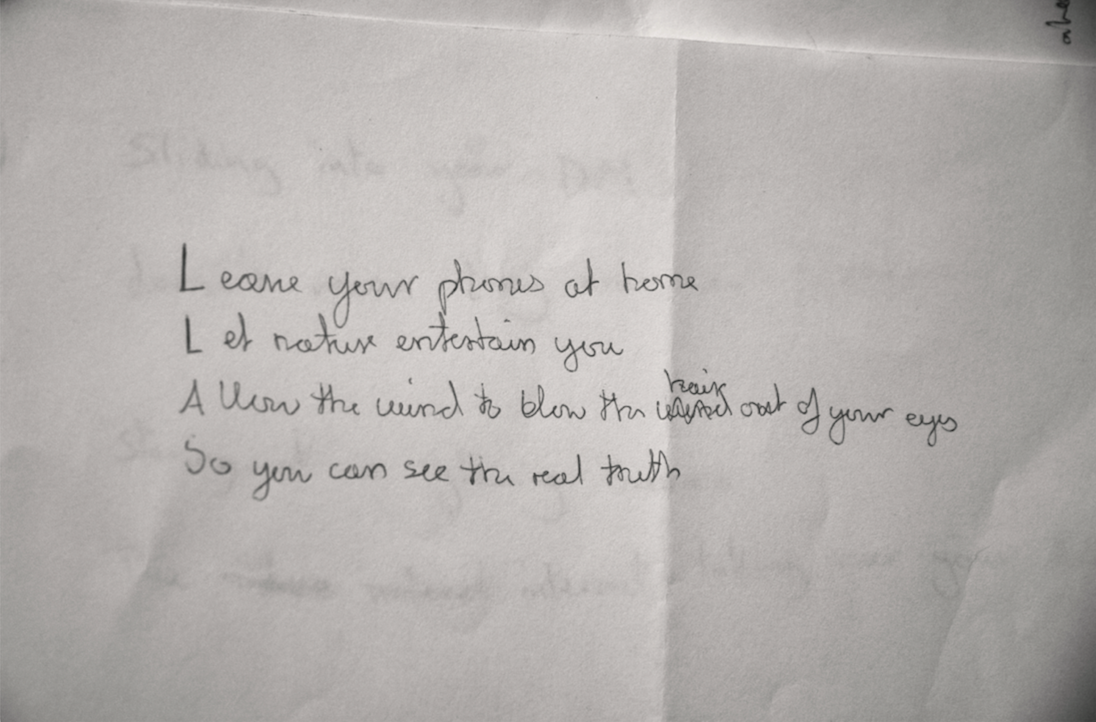 Leave your phones at home
Let nature entertain you
Allow the wind to blow the hair out of your eyes
So you can see the real truth
Sliding into your DM